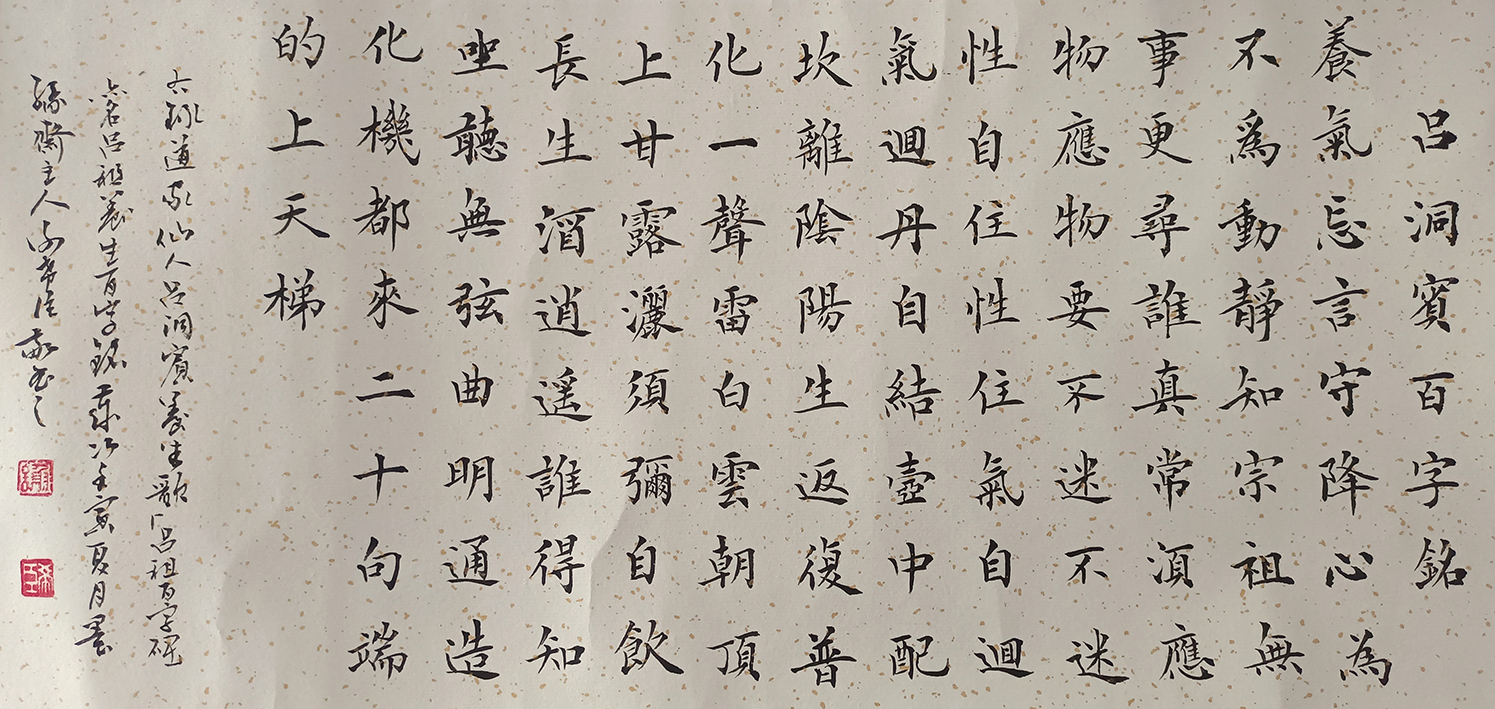 呂洞賓百字銘
養氣忘言守降心為
不為動靜知宗祖無
事更尋誰真常湏應
物應物要不迷不迷
性自住性住氣自迴
氣迴丹自結壺中配
坎離陰陽生返復普
化一聲雷白雲朝頂
上甘露灑須彌自飲
長生酒逍遥誰得知
坐聽無弦曲明通造
化機都來二十句端
的上天梯
右錄道家仙人呂洞賓養生歌呂祖百字碑
名呂祖養生百字銘歲次壬寅夏月
齋主人